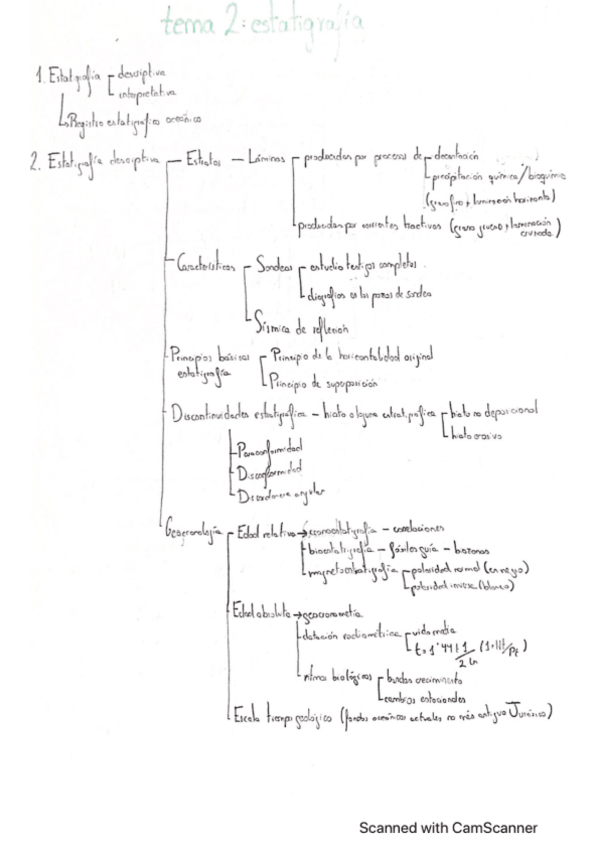 tema 2: estatigrafía
1. Estatigrafía descriptiva
interpretativa
Registro estatigráfico oceánico
2. Estatigrafía descriptiva - Estratos - Láminas producidas por procesos de decantación
precipitación química/bioquímica
(grano fino y laminación horizontal)
producidas por corrientes tractivas (grano grueso y laminación cruzada)
Características Sondeos estudio testigos completos
diagrafías en los pozos de sondeo
Sísmica de reflexión
Principios básicos estatigrafía Principio de la horizontalidad original
Principio de superposición
Discontinuidades estatigráfica - hiato o laguna estratigráfica hiato no deposicional
hiato erosivo
Paraconformidad
Disconformidad
Discordancia angular
Geocronología Edad relativa → cronoestatigrafía - correlaciones
bioestatigrafía - fósiles guía - biozonas
magnetoestratigrafía polaridad normal (en negro)
polaridad inversa (blanco)
Edad absoluta → geocronometría
datación radiométrica vida media
ritmos biológicos bandas crecimiento
cambios estacionales
Escala tiempo geológico (fondos oceánicos actuales no más antiguo Jurásico)
Scanned with CamScanner